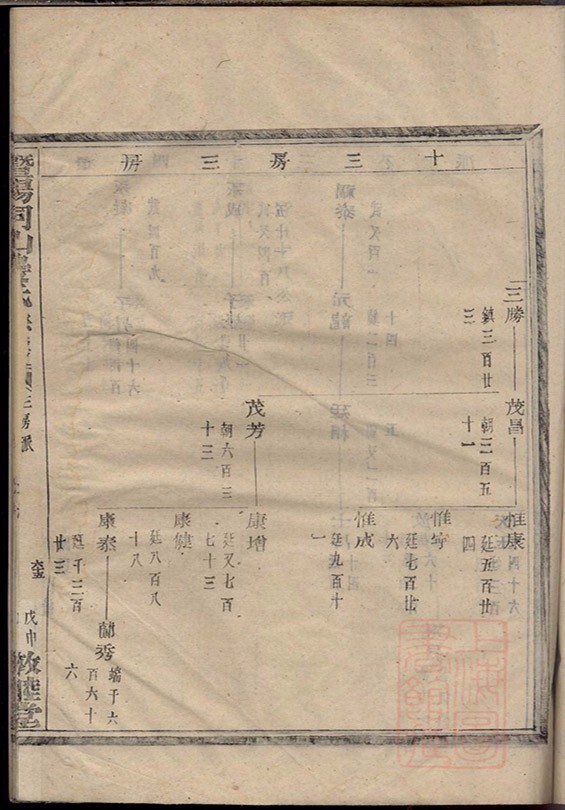 十三房三房
三勝
鎮三百廿
三
茂昌
朝三百五
十一
惟康
廷五百廿
四
惟寧
廷七百廿
六
惟成
廷九百十
一
茂芳
朝六百三
十三
康增
廷又七百
七十三
康健
廷八百八
十八
康泰
廷千三百
廿三
蘭秀
端千六
百六十
六
暨陽
三房派
戊申
敦睦堂